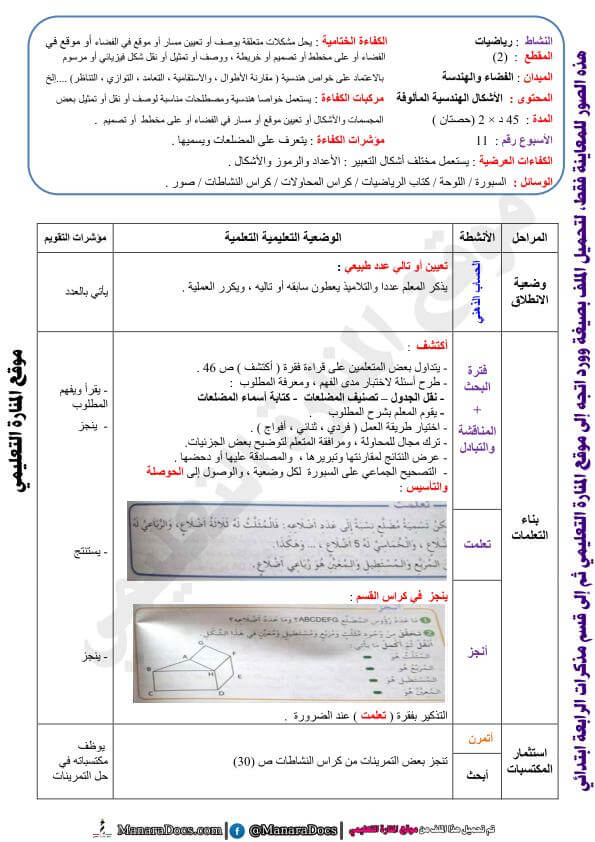 النشاط : رياضيات
المقطع : (2)
الميدان : الفضاء والهندسة
المحتوى : الأشكال الهندسية المألوفة
المدة : 45 د × 2 (حصتان )
الأسبوع رقم : 11
الكفاءة الختامية : يحل مشكلات متعلقة بوصف أو تعيين مسار أو موقع في الفضاء أو موقع في
الفضاء أو على مخطط أو تصميم أو خريطة ، ووصف أو تمثيل أو نقل شكل فيزياني أو مرسوم
بالاعتماد على خواص هندسية ( مقارنة الأطوال ، والاستقامية ، التعامد ، التوازي ، التناظر) ....إلخ
مركبات الكفاءة : يستعمل خواصا هندسية ومصطلحات مناسبة لوصف أو نقل أو تمثيل بعض
المجسمات والأشكال أو تعيين موقع أو مسار في الفضاء أو على مخطط أو تصميم .
مؤشرات الكفاءة : يتعرف على المضلعات ويسميها .
الكفاءات العرضية : يستعمل مختلف أشكال التعبير : الأعداد والرموز والأشكال .
الوسائل : السبورة / اللوحة / كتاب الرياضيات / كراس المحاولات / كراس النشاطات / صور .
المراحل الأنشطة الوضعية التعليمية التعلمية مؤشرات التقويم
وضعية الانطلاق
الحساب الذهني
تعيين أو تالي عدد طبيعي :
يذكر المعلم عددا والتلاميذ يعطون سابقه أو تاليه ، ويكرر العملية .
يأتي بالعدد
بناء التعلمات
فترة
البحث
+
المناقشة
والتبادل
أكتشف :
- يتداول بعض المتعلمين على قراءة فقرة ( أكتشف ) ص 46 .
- طرح أسئلة لاختبار مدى الفهم ، ومعرفة المطلوب :
- نقل الجدول – تصنيف المضلعات - كتابة أسماء المضلعات
- يقوم المعلم بشرح المطلوب .
- اختيار طريقة العمل ( فردي ، ثنائي ، أفواج ) .
- ترك مجال للمحاولة ، ومرافقة المتعلم لتوضيح بعض الجزئيات.
- عرض النتائج لمقارنتها وتبريرها ، والمصادقة عليها أو دحضها .
- التصحيح الجماعي على السبورة لكل وضعية ، والوصول إلى الحوصلة
والتأسيس :
- يقرأ ويفهم
المطلوب
- ينجز
تعلمت
تعلمت
تسمية مضلع نسبة إلى عدد أضلاعه. فالمثلث له ثلاثة أضلاع، والرباعي له
أضلاع، والخماسي له 5 أضلاع ، ... وهكذا.
والمربع والمستطيل والمعين هو رباعي أضلاع.
- يستنتج
أنجز
ينجز في كراس القسم :
1 ما عدد رؤوس المضلع ABCDEFG؟ وما عدد أضلاعه؟
2 تحقق من وجود مثلث ومربع ومستطيل ومعين في هذا الشكل.
أنقل ثم أكمل ما يأتي:
المثلث هو
المربع هو
المستطيل هو
المعين هو
A F G B H E C D
التذكير بفقرة ( تعلمت ) عند الضرورة .
- ينجز
استثمار
المكتسبات
أتمرن
أبحث
تنجز بعض التمرينات من كراس النشاطات ص (30)
يوظف
مكتسباته في
حل التمرينات
موقع المنارة التعليمي
موقع المنارة التعليمي
هذه الصور للمعاينة فقط، لتحميل الملف بصيغة وورد اتجه إلى موقع المنارة التعليمي ثم إلى قسم مذكرات الرابعة ابتدائي
تم تحميل هذا الملف من موقع المنارة التعليمي
@ManaraDocs
ManaraDocs.com